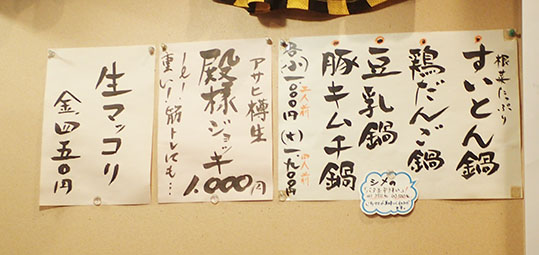 根菜たっぷり
すいとん鍋
鶏だんご鍋
豆乳鍋
豚キムチ鍋
各小一.一〇〇円 二人前
(大)一.九〇〇円 四人前
シメの
アサヒ樽生
殿様ジョッキ
1000円
重い!筋トレにも…
生マッコリ
金.四五〇円